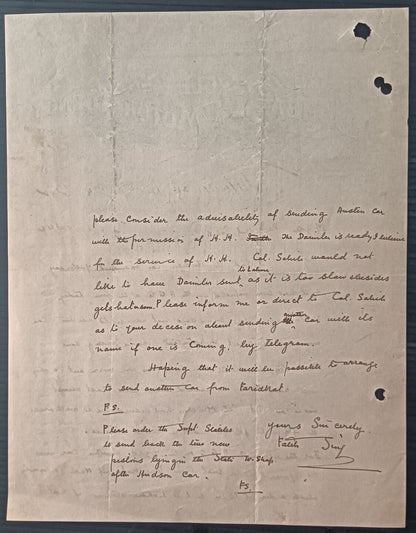 please consider the advisability of sending Austen car
with the permission of H. H. The Daimler is ready I believe
for the service of H. H. Col. Sahib would not
like to have Daimler sent as it is too slow & besides
gets hot soon. Please inform me or direct to Col. Sahib
as to your decision about sending another car with its
name if one is coming, by telegram.
Hoping that it will be possible to arrange
to send austen car from Faridkot.
P.S.
Please order the Supt. Stables
to send back the two new
pistons lying in the State W. Shop.
after Hudson Car.
yours Sincerely
Fateh Sing
F.S.